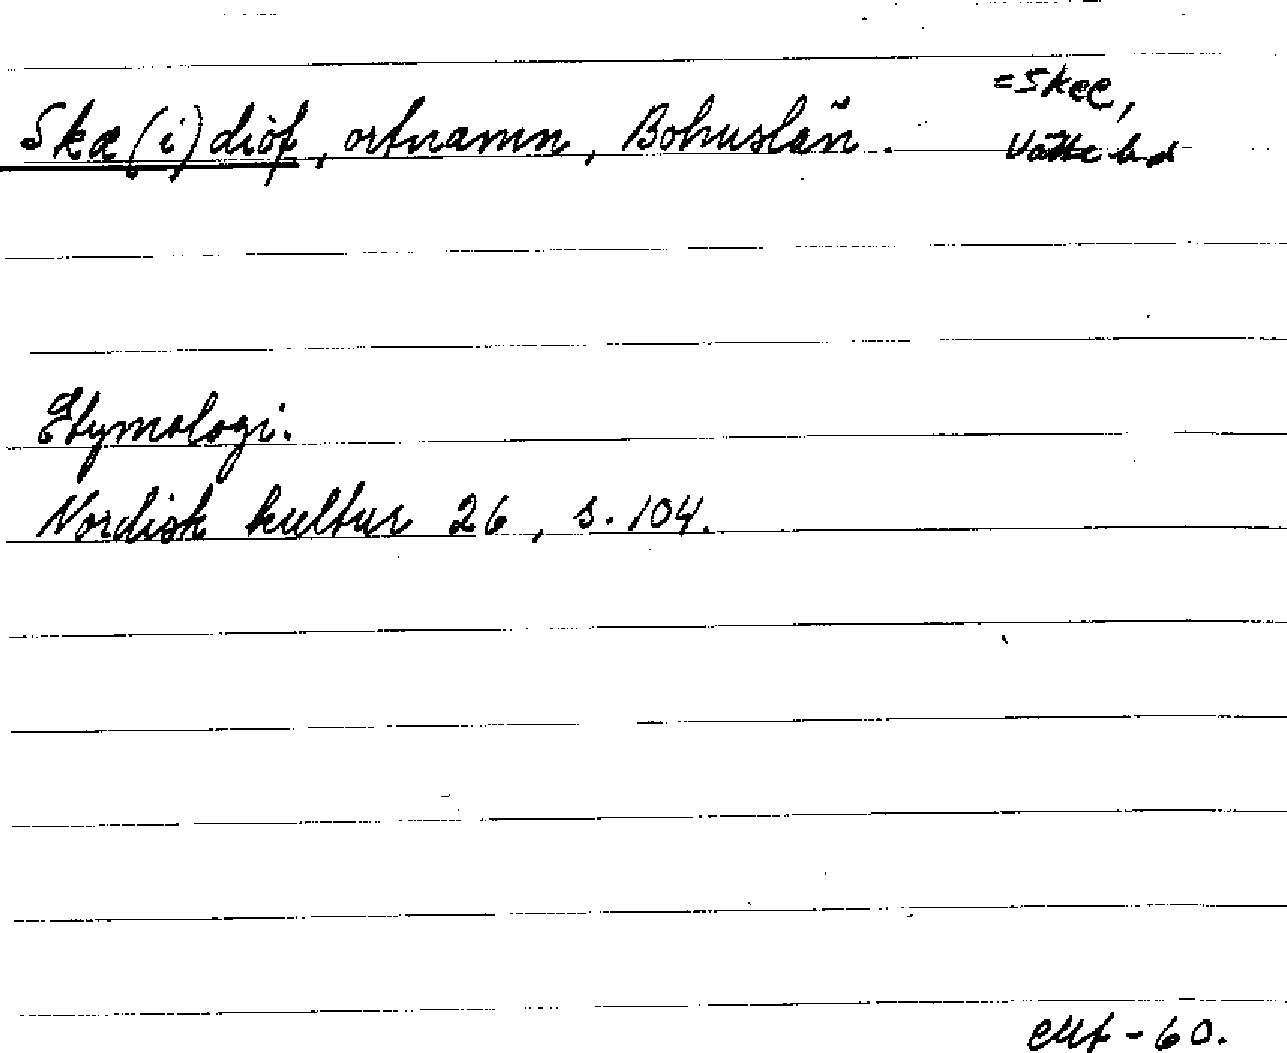 Skæ(i)diof, ortnamn, Bohuslän. =Skee,
Vätte hd
Etymologi.
Nordisk kultur 26, s. 104.
-60.